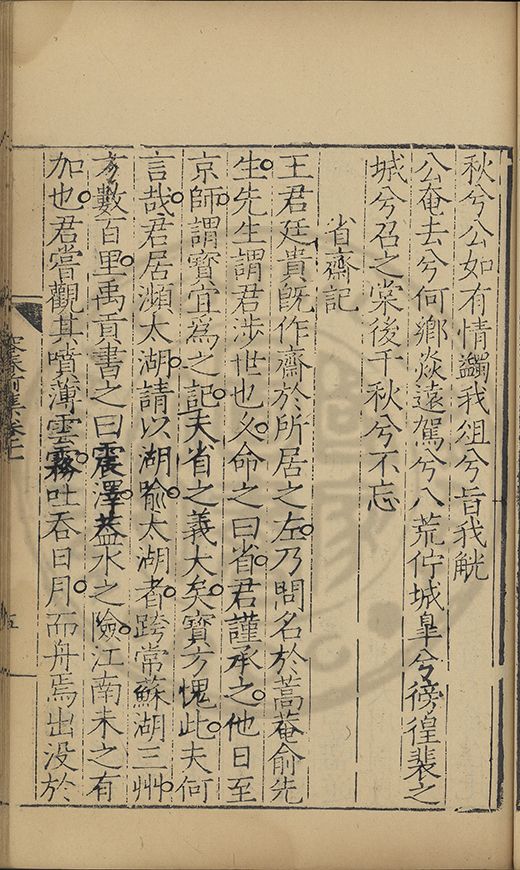 秋兮公如有情蠲我俎兮旨我觥
公奄去兮何鄉焱遠駕兮八荒佇城皐兮徬徨裴之
城兮召之棠後千秋兮不忘
省齋記
王君廷貴旣作齋於所居之左乃問名於蒿菴俞先
生先生謂君涉世也久命之曰省君謹承之他日至
京師謂寳宜爲之記夫省之義大矣寳方愧此夫何
言哉君居瀕太湖請以湖喻太湖者跨常蘇湖三州
方數百里禹貢書之曰震澤葢水之險江南未之有
加也君嘗觀其噴薄雲霧吐吞日月而舟焉出没於
前集卷十一
五